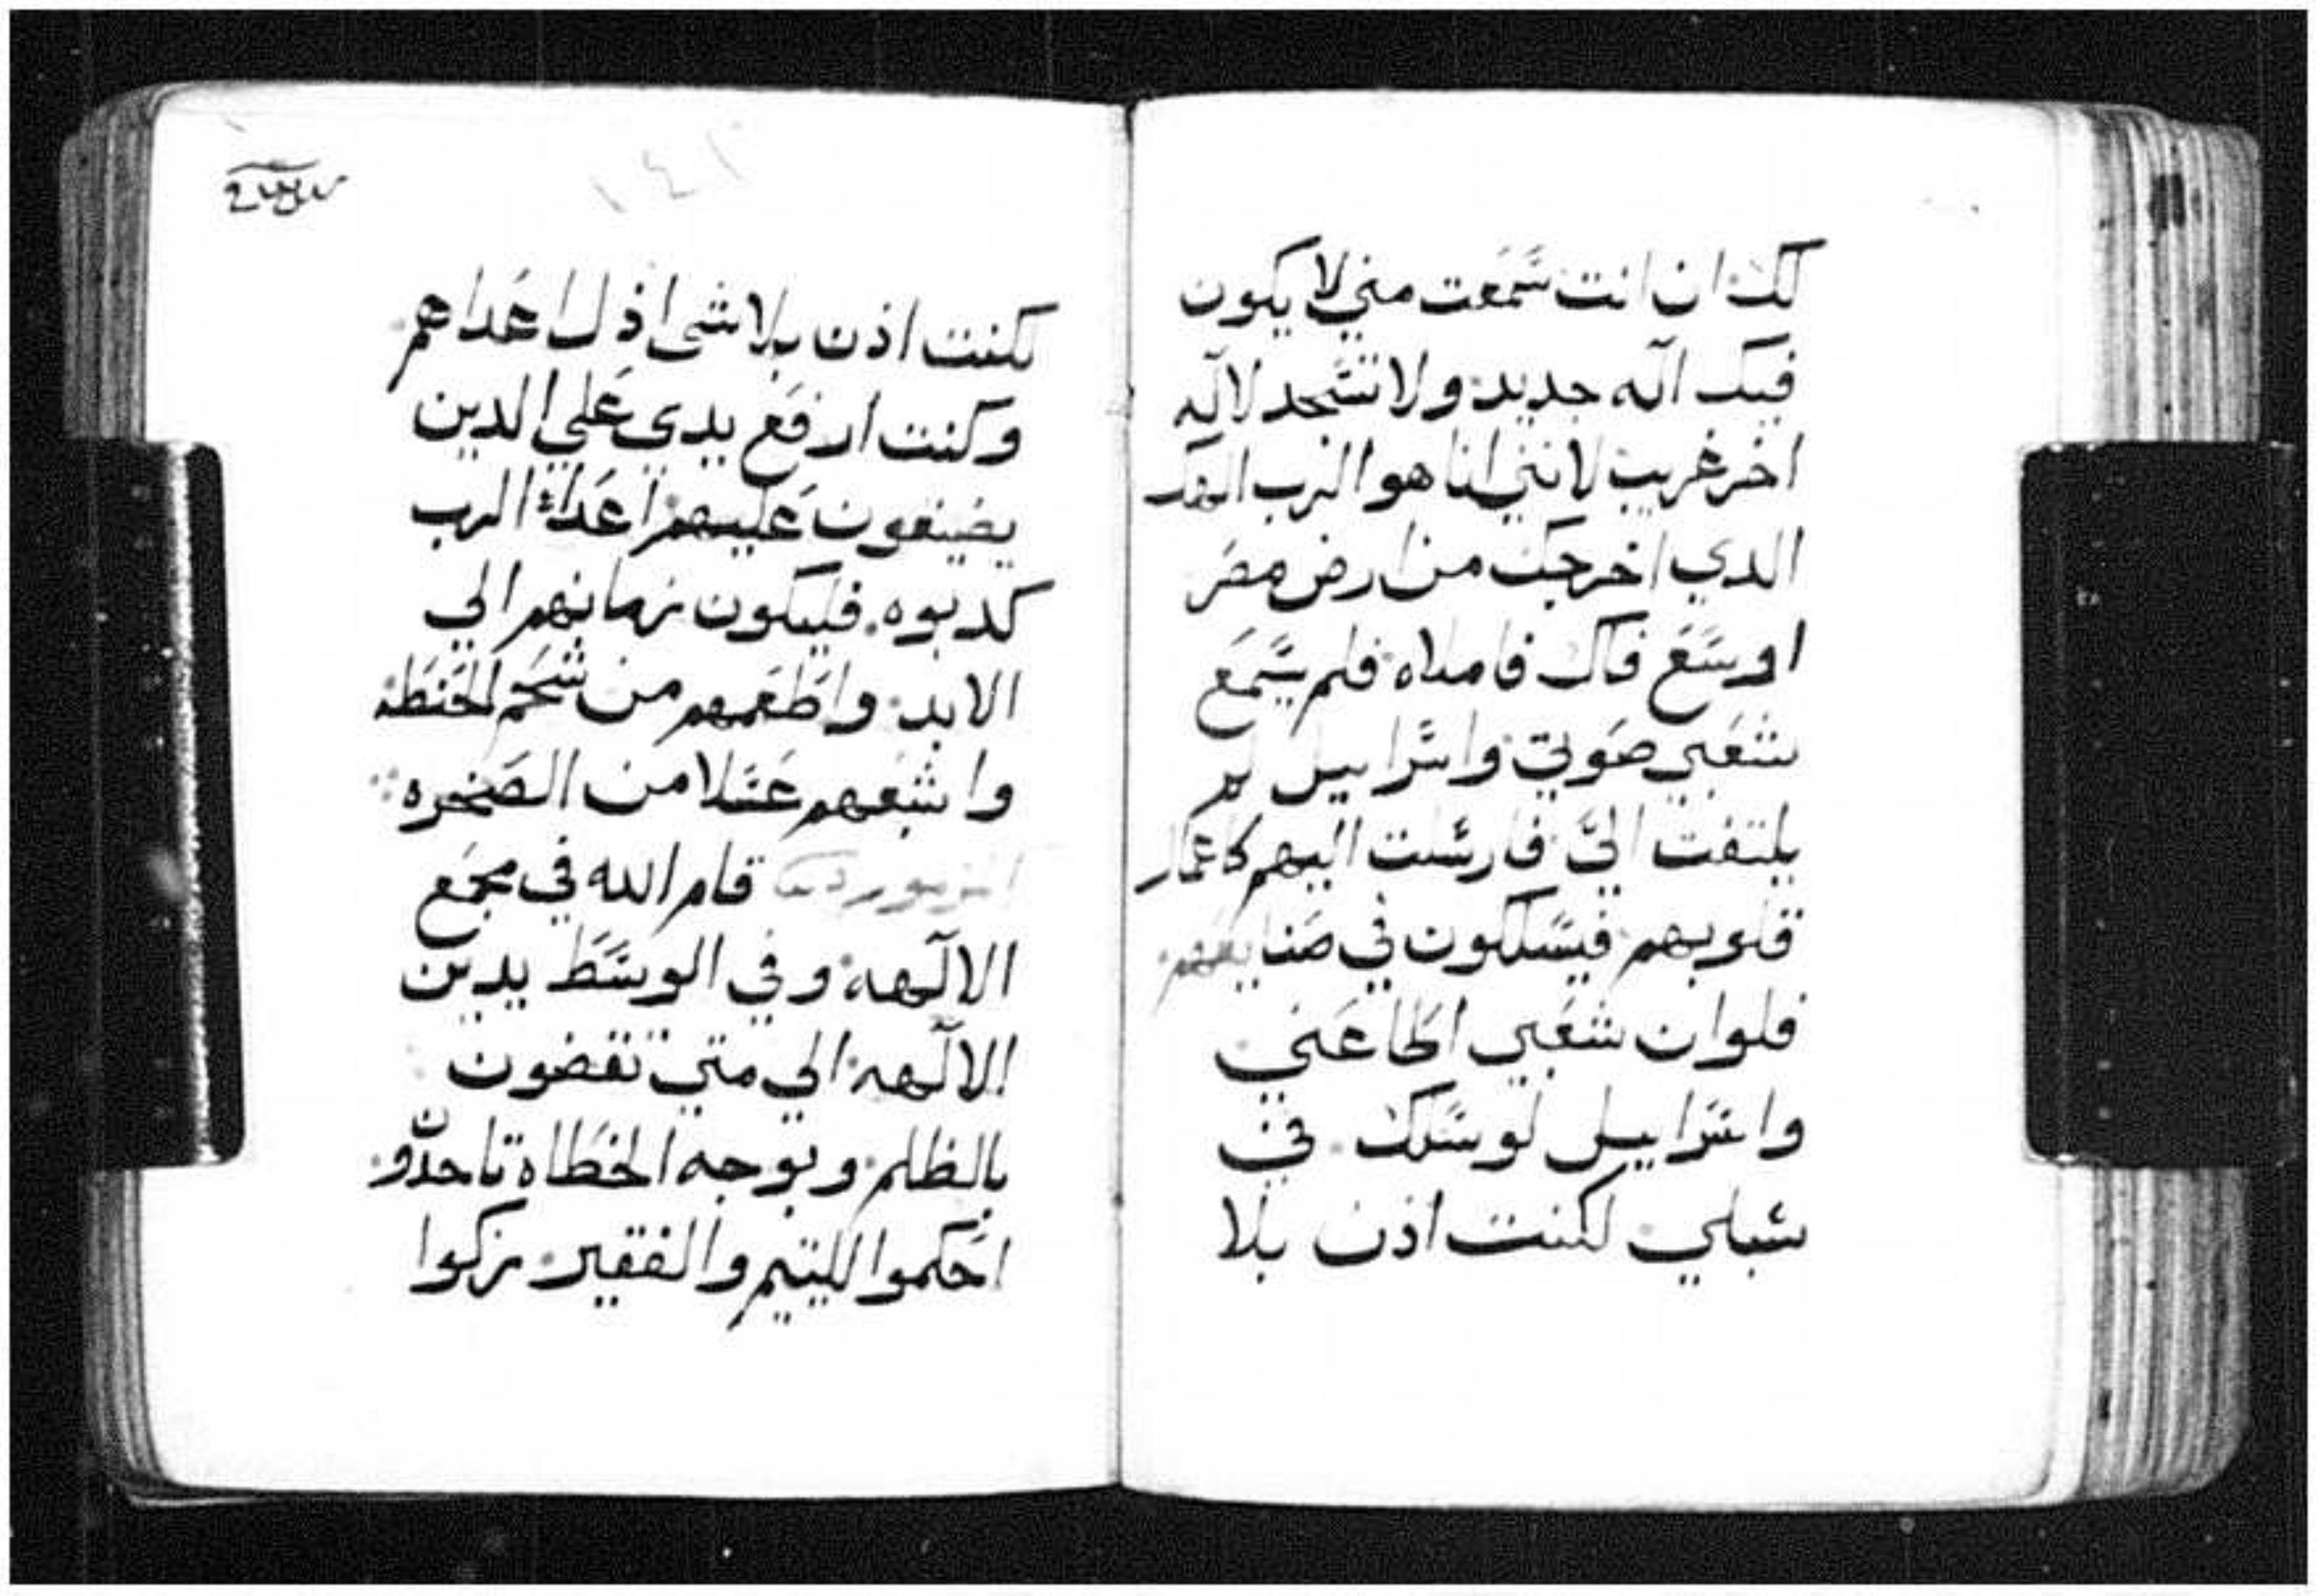 لك ان انت سمعت مني لا يكون
فيك اله جديد ولا تسجد لاله
اخر غريب لانني انا هو الرب الهك
الدي اخرجك من ارض مصر
اوسع فاك فاملاه فلم يسمع
شعبي صوتي واسراييل لم
يلتفت اليّ فارسلت اليهم كاعمار
قلوبهم فيسلكون في صنايعهم
فلوان شعبي اطاعني
واسراييل لو سلك في
سبلي لكنت اذن بلا
١٤١
لكنت اذن بلا شى اذل اعداهم
وكنت ارفع يدي علي الدين
يضيفون عليهم اعداء الرب
كدبوه فليكون زمانهم الي
الابد واطعمهم من شحم الحنطه
واشبعهم عسلا من الصخره
المزمور قام الله في مجمع
الالهه وفي الوسط يدين
الالهه الي متي تقضون
بالظلم وبوجه الخطاه تاخدون
احكموا لليتيم والفقير زكوا